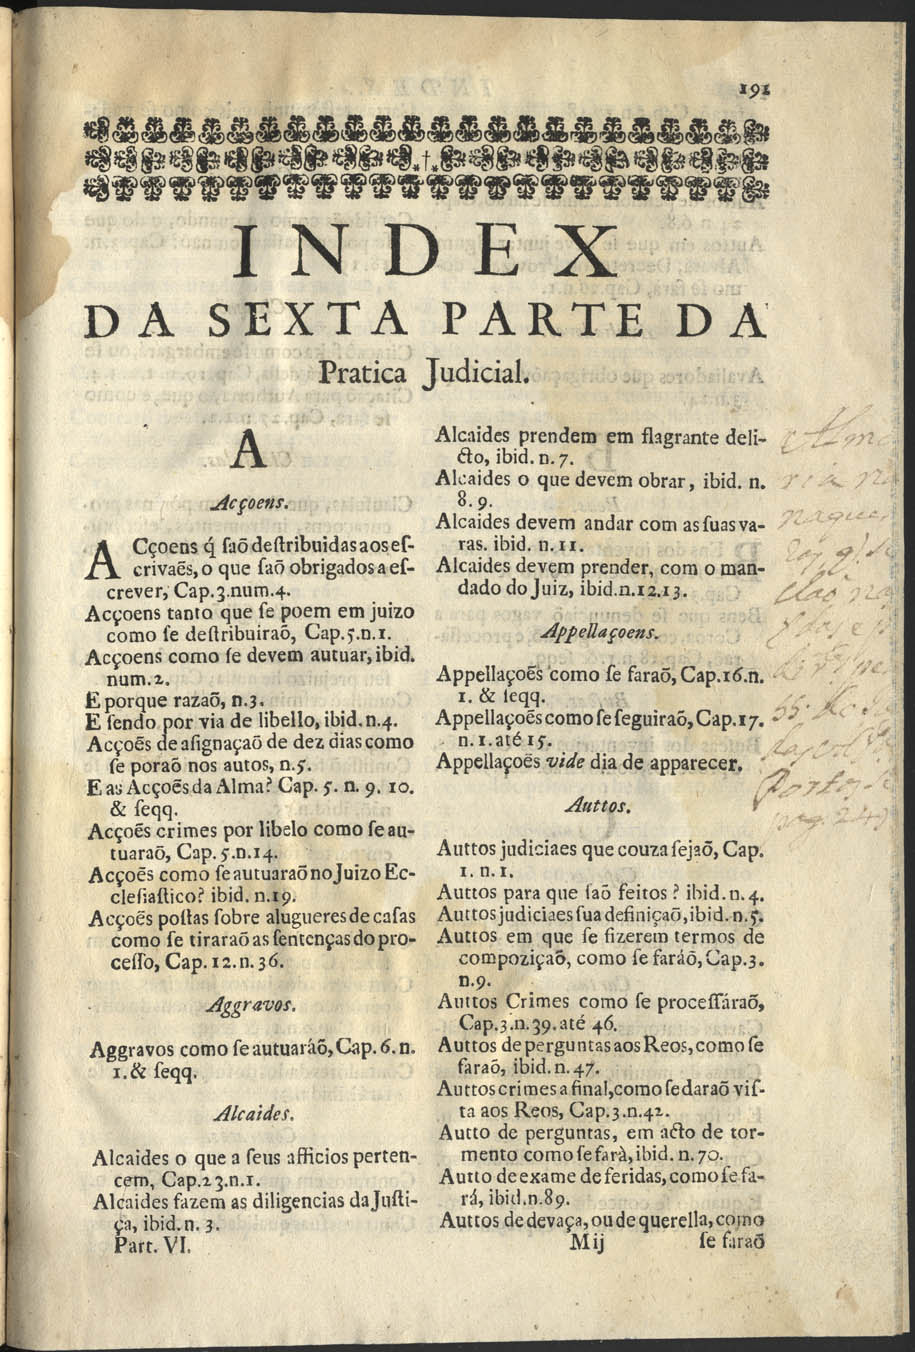 191
INDEX
DA SEXTA PARTE DA
Pratica Judicial.
A
Acçoens.
ACçoens q́ ſaõ deſtribuidas aos eſ-
crivaẽs, o que ſaõ obrigados a eſ-
crever, Cap.3.num.4.
Acçoens tanto que ſe poem em juizo
como ſe deſtribuiraõ, Cap.5.n.1.
Acçoens como ſe devem autuar, ibid.
num.2.
E porque razaõ, n.3.
E ſendo por via de libello, ibid.n.4.
Acçoẽs de aſignaçaõ de dez dias como
ſe poraõ nos autos, n.5.
E as Acçoẽs da Alma? Cap. 5. n. 9. 10.
& ſeqq.
Acçoẽs crimes por libelo como ſe au-
tuaraõ, Cap. 5.n.14.
Acçoẽs como ſe autuaraõ no Juizo Ec-
cleſiaſtico? ibid. n.19.
Acçoẽs poſtas ſobre alugueres de caſas
como ſe tiraraõ as ſentenças do pro-
ceſſo, Cap. 12.n.36.
Aggravos.
Aggravos como ſe autuaráõ, Cap. 6. n.
1. & ſeqq.
Alcaides.
Alcaides o que a ſeus afficios perten-
cem, Cap.23.n.1.
Alcaides fazem as diligencias da Juſti-
ça, ibid. n. 3.
Part. VI.
Alcaides prendem em flagrante deli-
cto, ibid. n. 7.
Alcaides o que devem obrar, ibid. n.
8. 9.
Alcaides devem andar com as ſuas va-
ras. ibid. n. 11.
Alcaides devem prender, com o man-
dado do Juiz, ibid.n.12.13.
Appellaçoens.
Appellaçoẽs como ſe faraõ, Cap.16.n.
1. & ſeqq.
Appellaçoẽs como ſe ſeguiraõ, Cap.17.
n. 1. até 15.
Appellaçoẽs vide dia de apparecer.
Auttos.
Auttos judiciaes que couza ſejaõ, Cap.
1. n. 1.
Auttos para que ſaõ feitos? ibid. n. 4.
Auttos judiciaes ſua definiçaõ, ibid. n.5.
Auttos em que ſe fizerem termos de
compoziçaõ, como ſe faráõ, Cap.3.
n.9.
Auttos Crimes como ſe proceſſáraõ,
Cap.3.n.39. até 46.
Auttos de perguntas aos Reos, como ſe
faraõ, ibid. n. 47.
Auttos crimes a final, como ſe daraõ viſ-
ta aos Reos, Cap.3.n.42.
Autto de perguntas, em acto de tor-
mento como ſe farà, ibid. n. 70.
Autto de exame de feridas, como ſe fa-
rá, ibid.n.89.
Auttos de devaça, ou de querella, como
Mij ſe faraõ
Portos
pag. 249